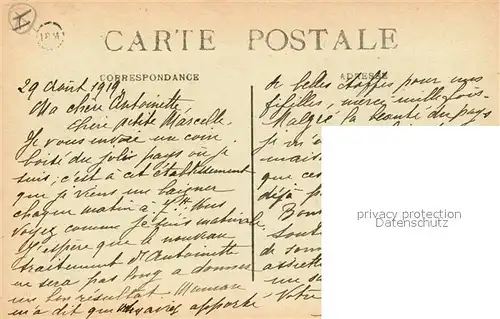 CARTE POSTALE
CORRESPONDANCE
ADRESSE
29 Août 1919
Ma chère Antoinette,
Chère petite Marcelle,
Je vous envoie un coin
boisé du joli pays où je
suis, c'est à cet établissement
que je viens me baigner
chaque matin à Vous
voyez comme je suis matinale
J'espère que le nouveau
traitement d'Antoinette
ne sera pas long à donner
un bon résultat. Maman
m'a dit que apporté
de belles étoffes pour mes
fifilles, merci mille fois.
Malgré la beauté du pays
je m'
mais
que ces
déjà
Bon
de
assiette
un
Votre
privacy protection
Sammlerparadies